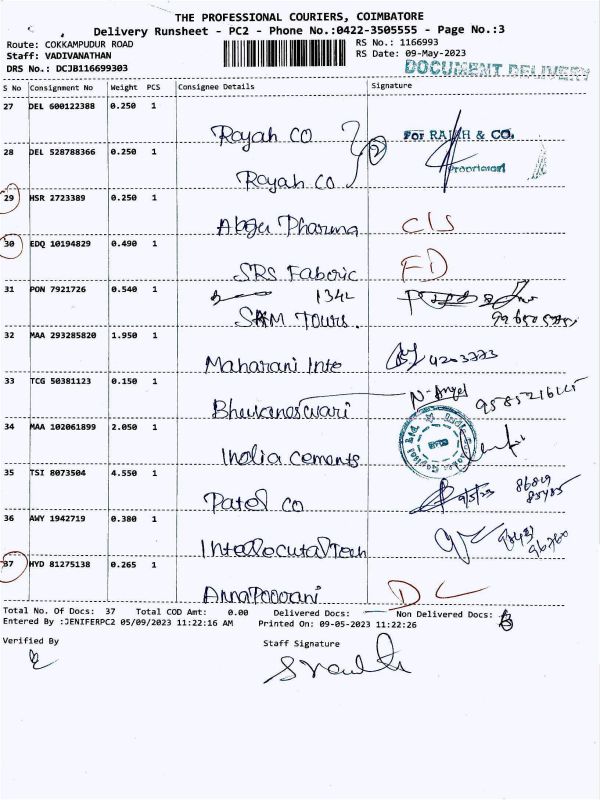 THE PROFESSIONAL COURIERS, COIMBATORE
Delivery Runsheet - PC2 - Phone No.:0422-3505555 - Page No.:3
Route: COKKAMPUDUR ROAD
RS No.: 1166993
Staff: VADIVANATHAN
RS Date: 09-May-2023
DRS No.: DCJB116699303
DOCUMENT DELIVERY
S No Consignment No Weight PCS Consignee Details Signature
27 DEL 600122388 0.250 1
Rayah CO
For RAJAH & CO.
28 DEL 528788366 0.250 1
2
Proprietor
Rayah CO
29 HSR 2723389 0.250 1
Pharma CIS
30 EDQ 10194829 0.490 1
SRS Faboric FD
31 PON 7921726 0.540 1
1342
SAM Tours.
32 MAA 293285820 1.950 1
Maharani Inte
33 TCG 50381123 0.150 1
N-Angel
Bhuvaneswari
34 MAA 102061899 2.050 1
India Cements
35 TSI 8073504 4.550 1
Patel CO 9/5/23
36 AWY 1942719 0.380 1
37 HYD 81275138 0.265 1
Annapoorani
Total No. Of Docs: 37 Total COD Amt: 0.00 Delivered Docs: Non Delivered Docs:
Entered By :JENIFERPC2 05/09/2023 11:22:16 AM Printed On: 09-05-2023 11:22:26
Verified By
Staff Signature